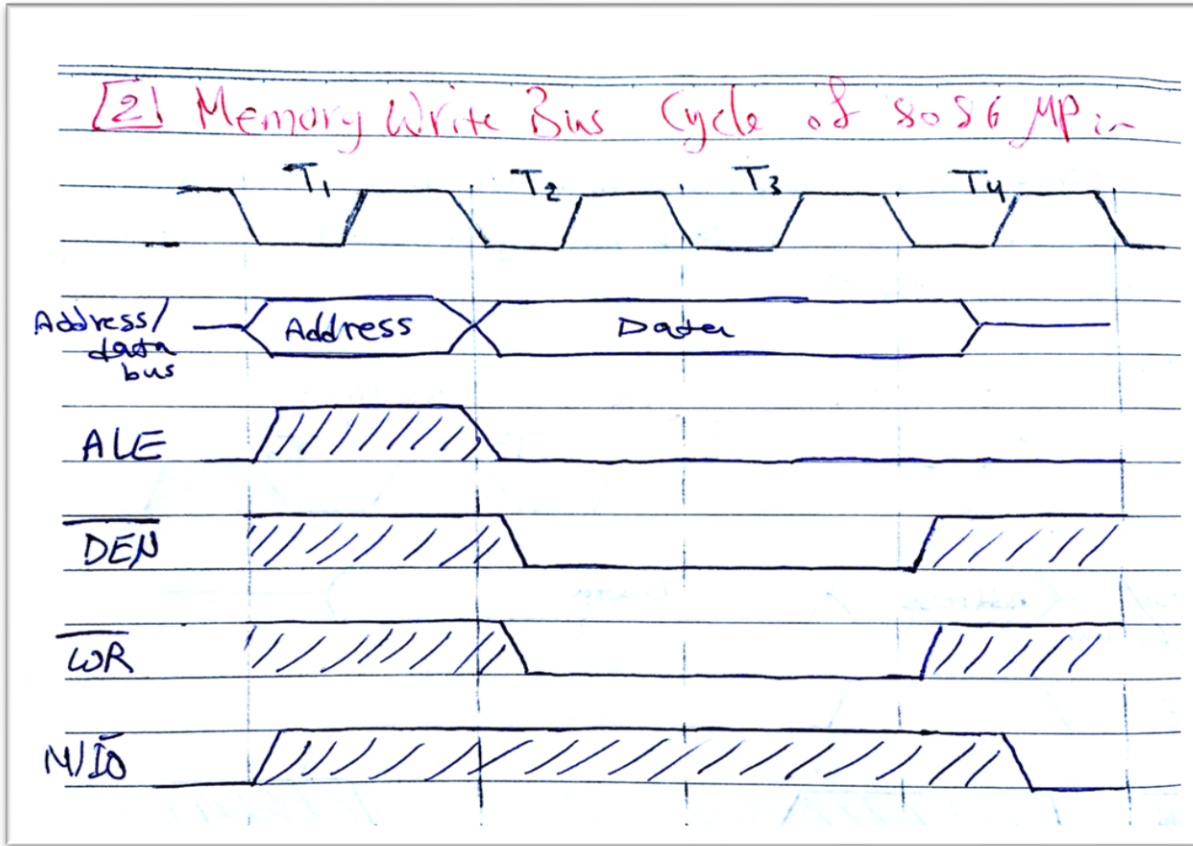 [2] Memory Write Bus Cycle of 8086 μP in
T1 T2 T3 T4
Address/
data
bus
Address Data
ALE
D̅E̅N̅
W̅R̅
M/I̅O̅